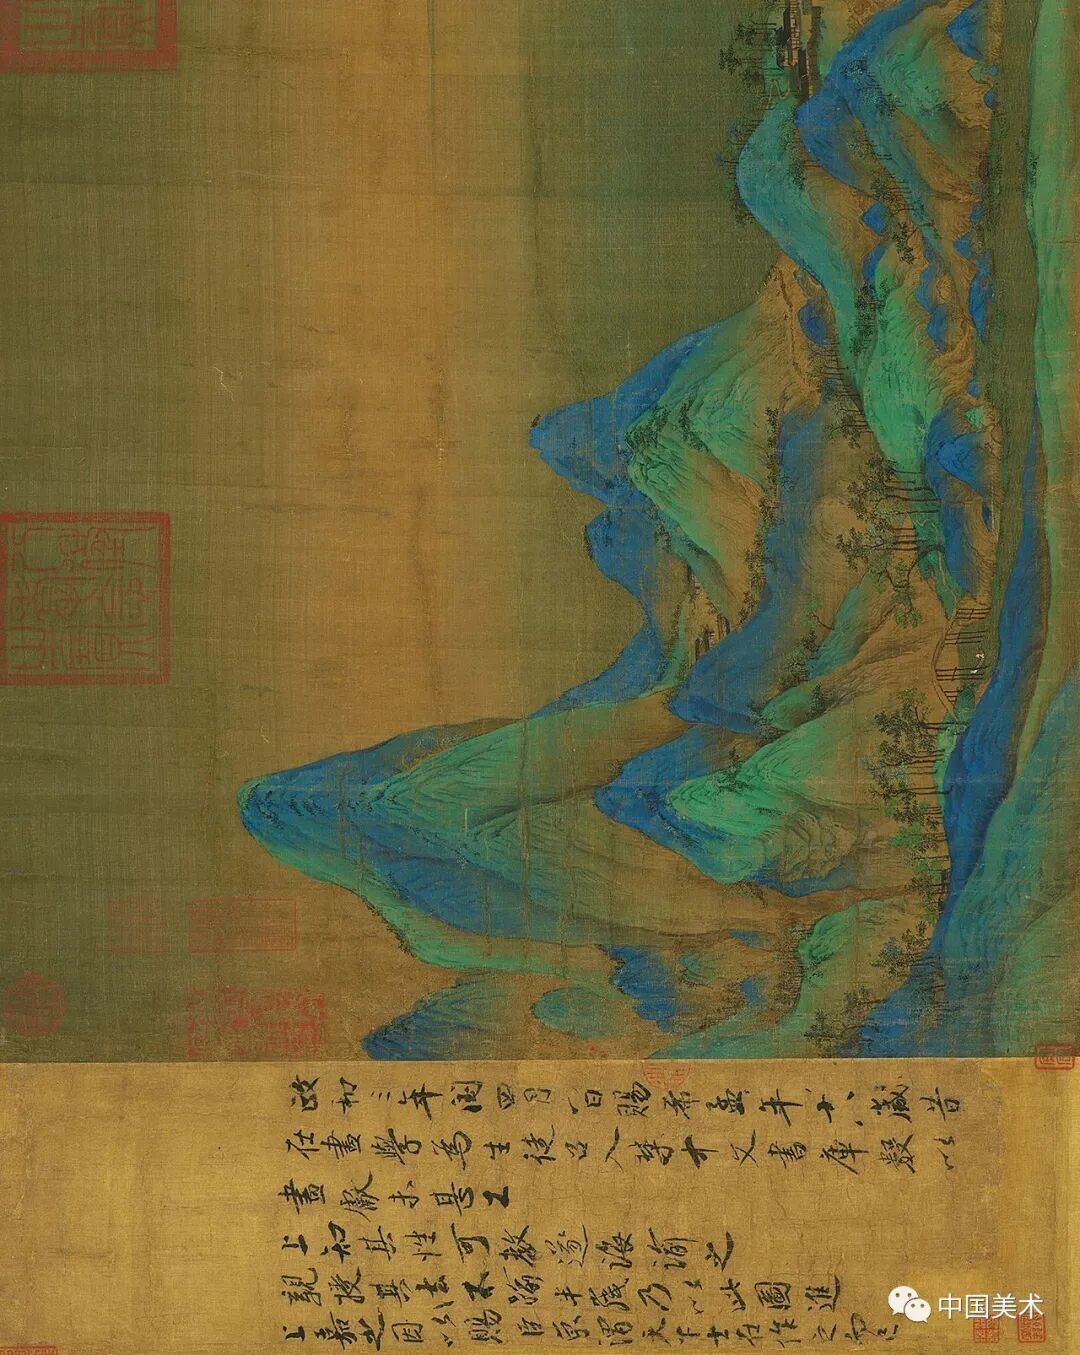 政和三年閏四月一日賜希孟年十八歲昔
在畫學為生徒召入禁中文書庫數以
畫獻未甚工
上知其性可教遂誨諭之
親授其法不踰半歲乃以此圖進
上嘉之因以賜臣京謂天下士在作之而已
中国美术